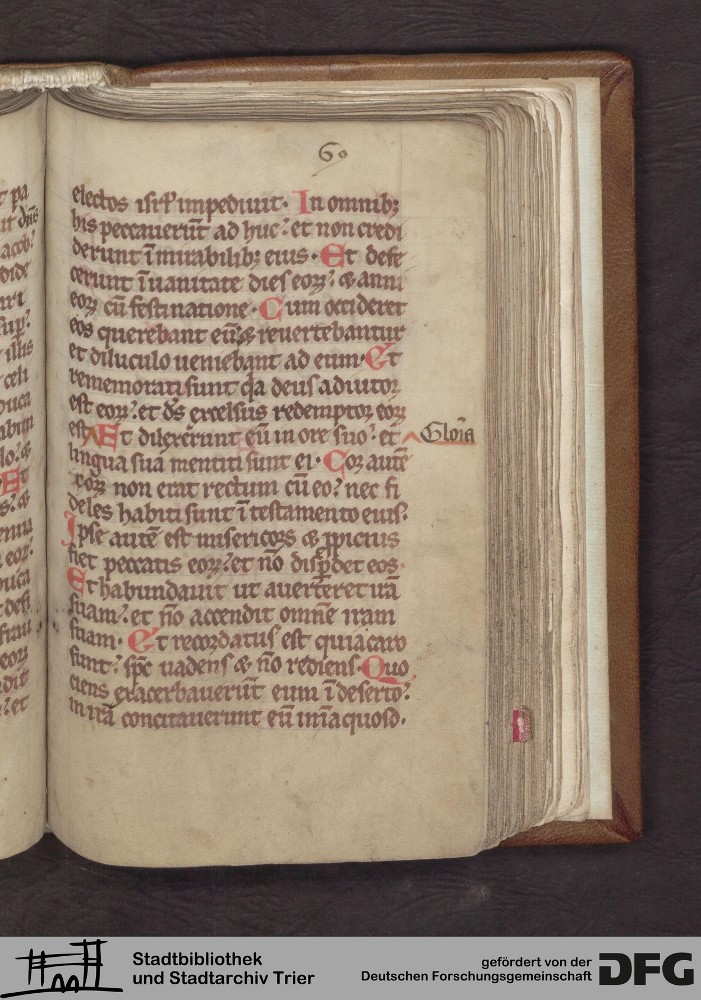 60
electos isrl' impediuit. In omnib;
his peccauerūt ad huc: et non credi
derunt ī mirabilib; eius. Et defe
cerunt ī uanitate dies eoꝝ: & anni
eoꝝ cū festinatione. Cum occideret
eos querebant eū: & reuertebantur
et diluculo ueniebant ad eum. Et
rememorati sunt qꝛa deus adiutor
est eoꝝ: et ds̄ excelsus redemptor eoꝝ
est Et dilexerunt eū in ore suo: et
Gloīa
lingua sua mentiti sunt ei. Cor autē
eoꝝ non erat rectum cū eo: nec fi
deles habiti sunt ī testamento eius:
Ipse autē est misericors & ꝓpicius
fiet peccatis eoꝝ: et nō disꝑdet eos.
Et habundauit ut auerteret irā
suam: et nō accendit omnē iram
suam. Et recordatus est quia caro
sunt: spc̄ uadens & nō rediens. Quo
ciens exacerbauerūt eum ī deserto:
in irā concitauerunt eū in inaquoso.
t pa
dn̄s
acob:
dide
illis
celi
Et
eoꝝ
: et
Stadtbibliothek
und Stadtarchiv Trier
gefördert von der
Deutschen Forschungsgemeinschaft DFG